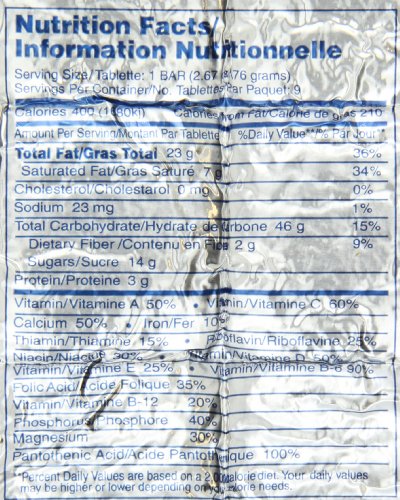 Nutrition Facts/
Information Nutritionnelle
Serving Size/Tablette: 1 BAR (2.67 /76 grams)
Servings Per Container/No. Tablettes Par Paquet:9
Calories 400 Calories from Fat/Calorie de gras 210
Amount Per Serving/Montant Par Tablette %Daily Value**/% Par Jour**
Total Fat/Gras Total 23 g 36%
Saturated Fat/Gras Saturé 7 g 34%
Cholesterol/Cholestarol 0 mg 0%
Sodium 23 mg 1%
Total Carbohydrate/Hydrate de 46 g 15%
Dietary Fiber/Contenu en 2 g 9%
Sugars/Sucre 14 g
Protein/Proteine 3 g
Vitamin/Vitamine A 50% • /Vitamine C 60%
Calcium 50% • Iron/Fer 10%
Thiamin/Thiamine 15% • Riboflavin/Riboflavine 25%
Niacin/Niacine 30% Vitamin/Vitamine D 50%
Vitamin/Vitamine E 25% Vitamin/Vitamine B-6 90%
Folic Acid/Acide Folique 35%
Vitamin/Vitamine B-12 20%
Phosphorus/Phosphore 40%
Magnesium 30%
Pantothenic Acid/Acide 100%
*Percent Daily Values are based on a 2,000 calorie diet. Your daily values
may be higher or lower depending on your calorie needs.